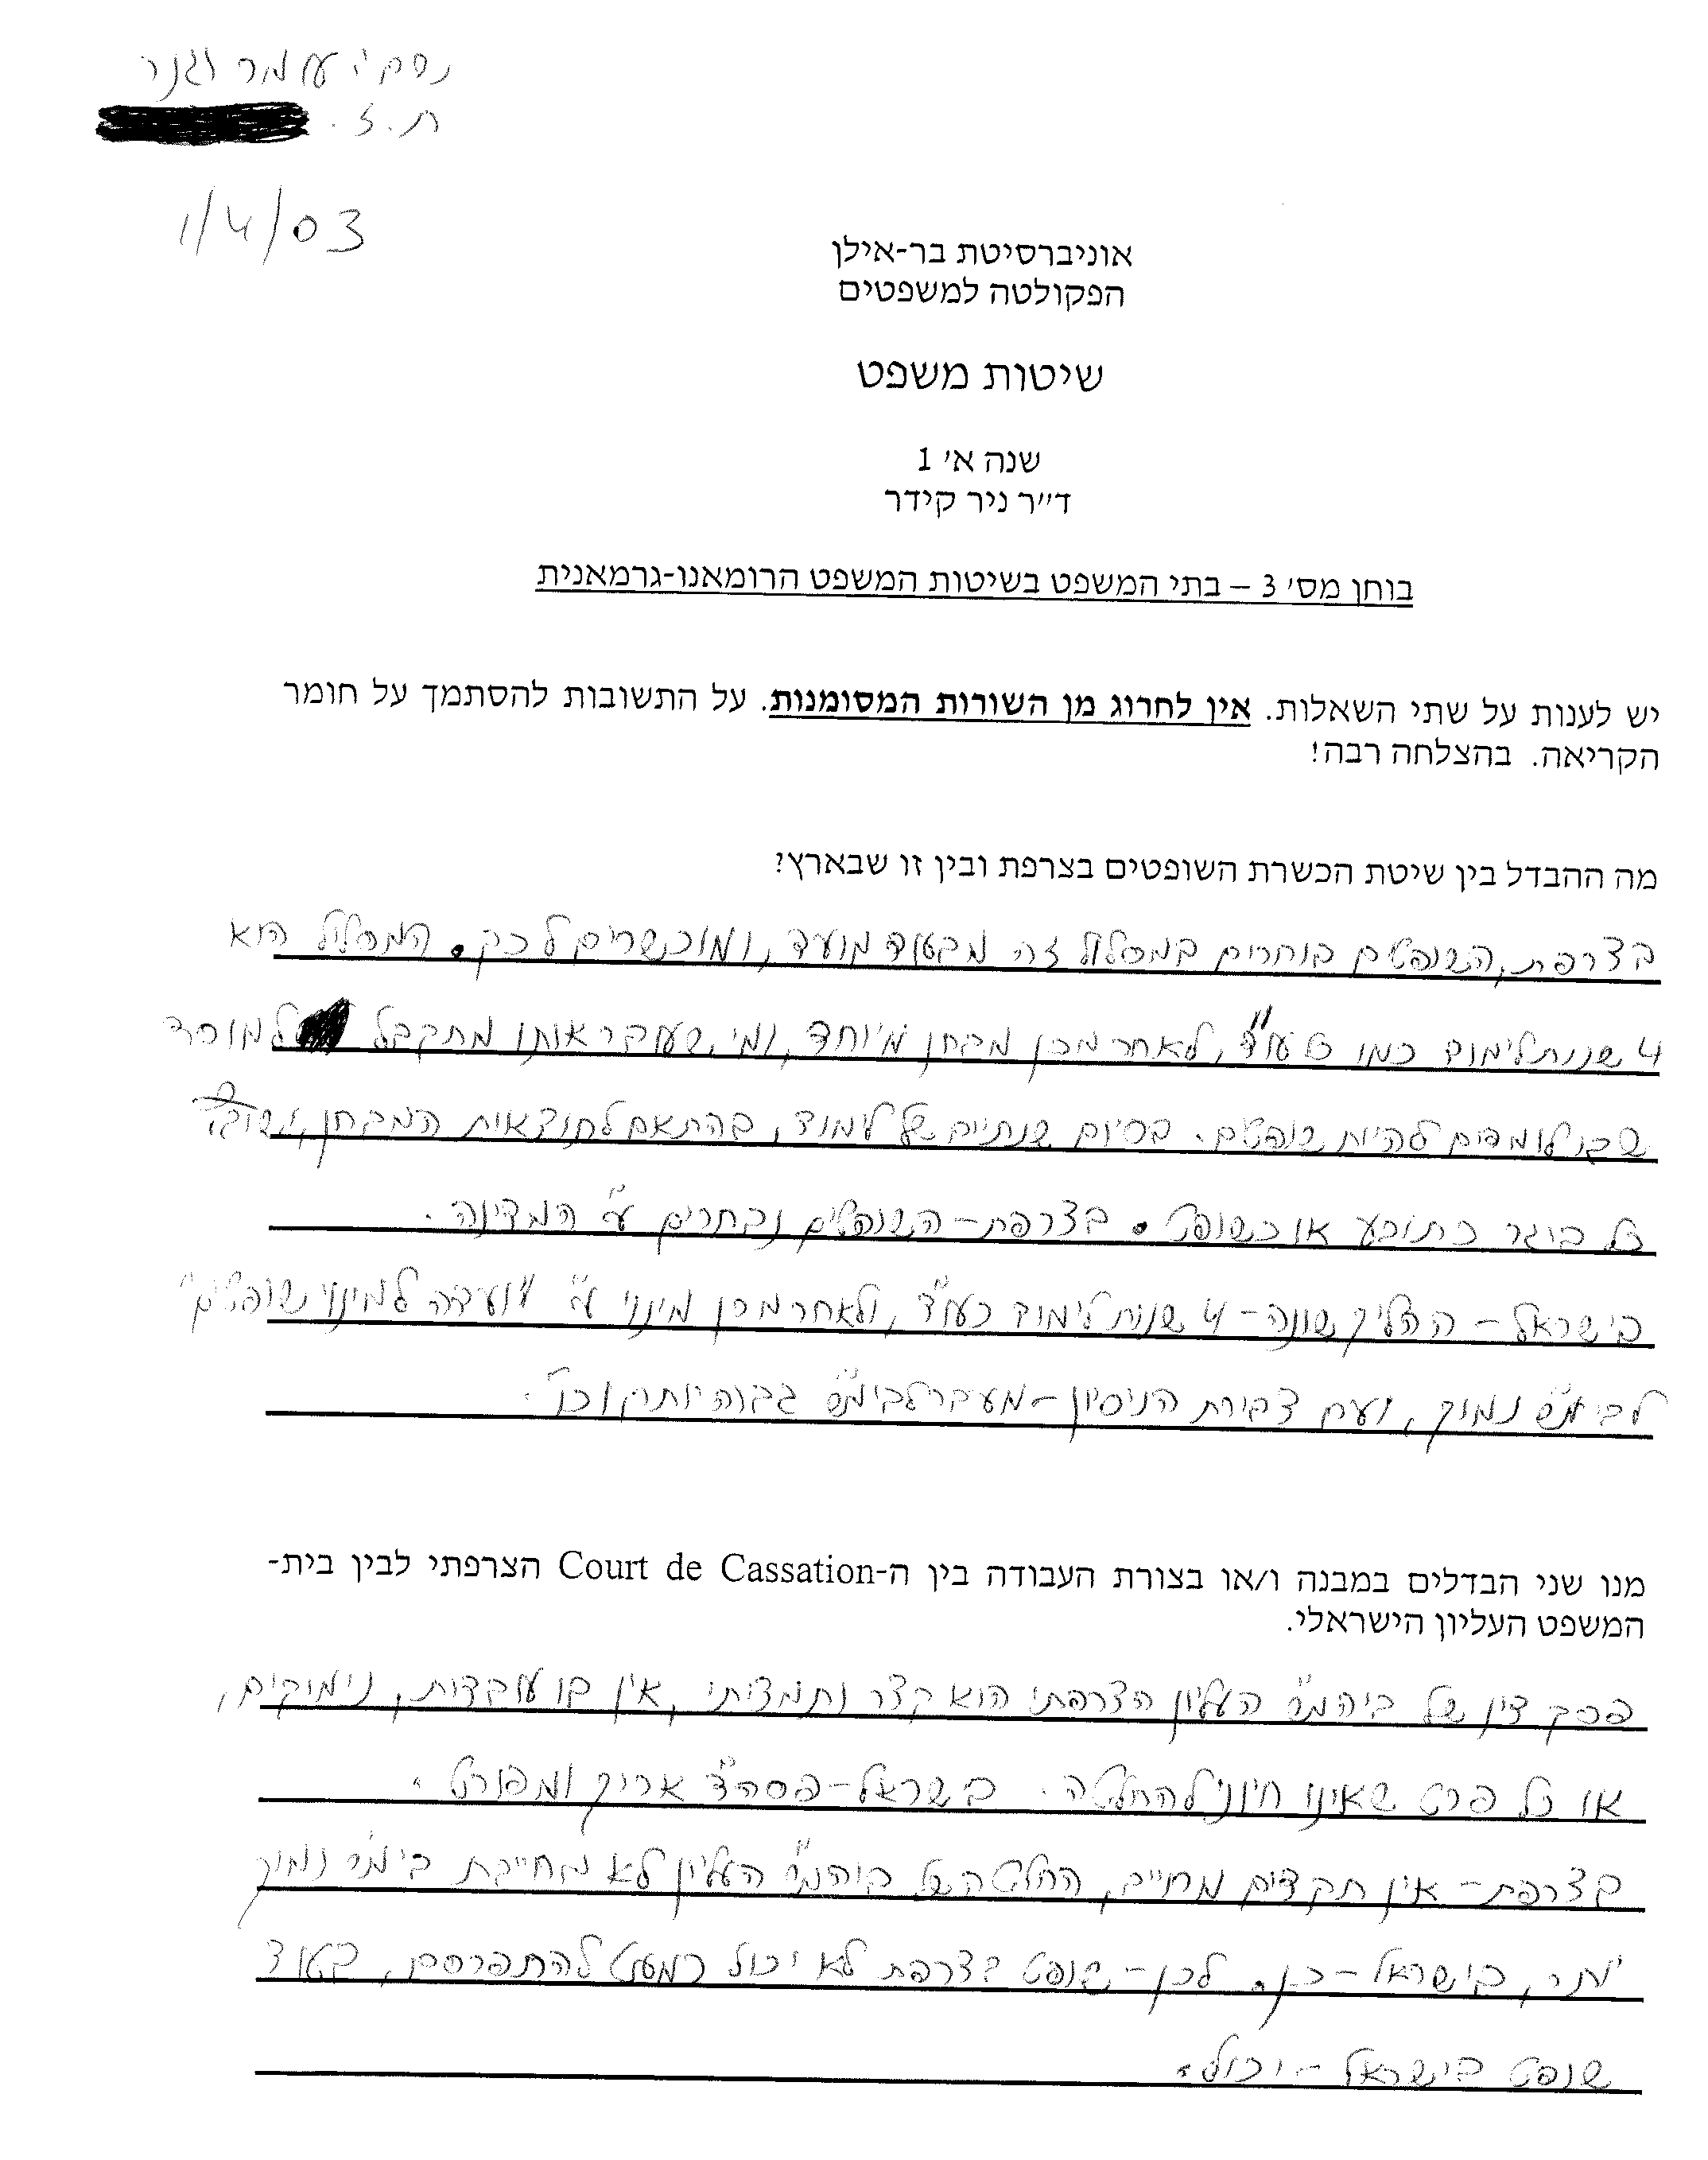 נסים עמר וגנר
ת.ז.
1/4/03
אוניברסיטת בר-אילן
הפקולטה למשפטים
שיטות משפט
שנה א' 1
ד"ר ניר קידר
בוחן מס' 3 – בתי המשפט בשיטות המשפט הרומאנו-גרמאנית
יש לענות על שתי השאלות. אין לחרוג מן השורות המסומנות. על התשובות להסתמך על חומר
הקריאה. בהצלחה רבה!
מה ההבדל בין שיטת הכשרת השופטים בצרפת ובין זו שבארץ?
בצרפת, השופטים בוחרים במסלול זה מבעוד מועד, ומוכשרים לכך. המסלול הוא
4 שנות לימוד כמו כל עו"ד, לאחר מכן מבחן מיוחד, ומי שעובר אותו מתקבל למוסד
שבו לומדים להיות שופטים. בסיום שנתיים של לימוד, בהתאם לתוצאות המבחן,
כל בוגר כתובע או כשופט. בצרפת - השופטים נבחרים ע"י המדינה.
בישראל - ההליך שונה - 4 שנות לימוד כעו"ד, ולאחר מכן מינוי ע"י "ועדה למינוי שופטים"
לבימ"ש נמוך, ועם צבירת הניסיון - מעבר לבימ"ש גבוה יותר וכו'.
מנו שני הבדלים במבנה ו/או בצורת העבודה בין ה-Court de Cassation הצרפתי לבין בית-
המשפט העליון הישראלי.
פסק דין של ביהמ"ש העליון הצרפתי הוא קצר ותמציתי, אין בו עובדות, נימוקים,
או כל פרט שאינו חיוני להחלטה. בישראל - פסה"ד אריך ומפורט.
בצרפת - אין תקדים מחייב, החלטה של ביהמ"ש העליון לא מחייבת בימ"ש נמוך
יותר, בישראל - כן. לכן - שופט בצרפת לא יכול כמעט להתפרסם, בעוד
שופט בישראל - יכול.